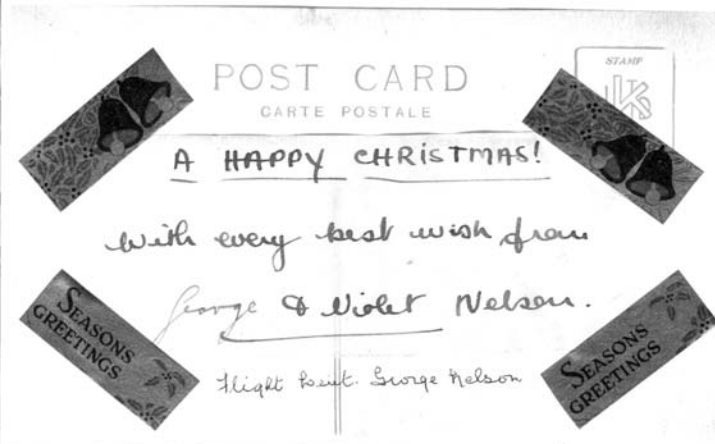 POST CARD
CARTE POSTALE
STAMP
A HAPPY CHRISTMAS!
With every best wish from
George & Violet Nelson.
Flight Lieut. George Nelson
SEASONS
GREETINGS
SEASONS
GREETINGS